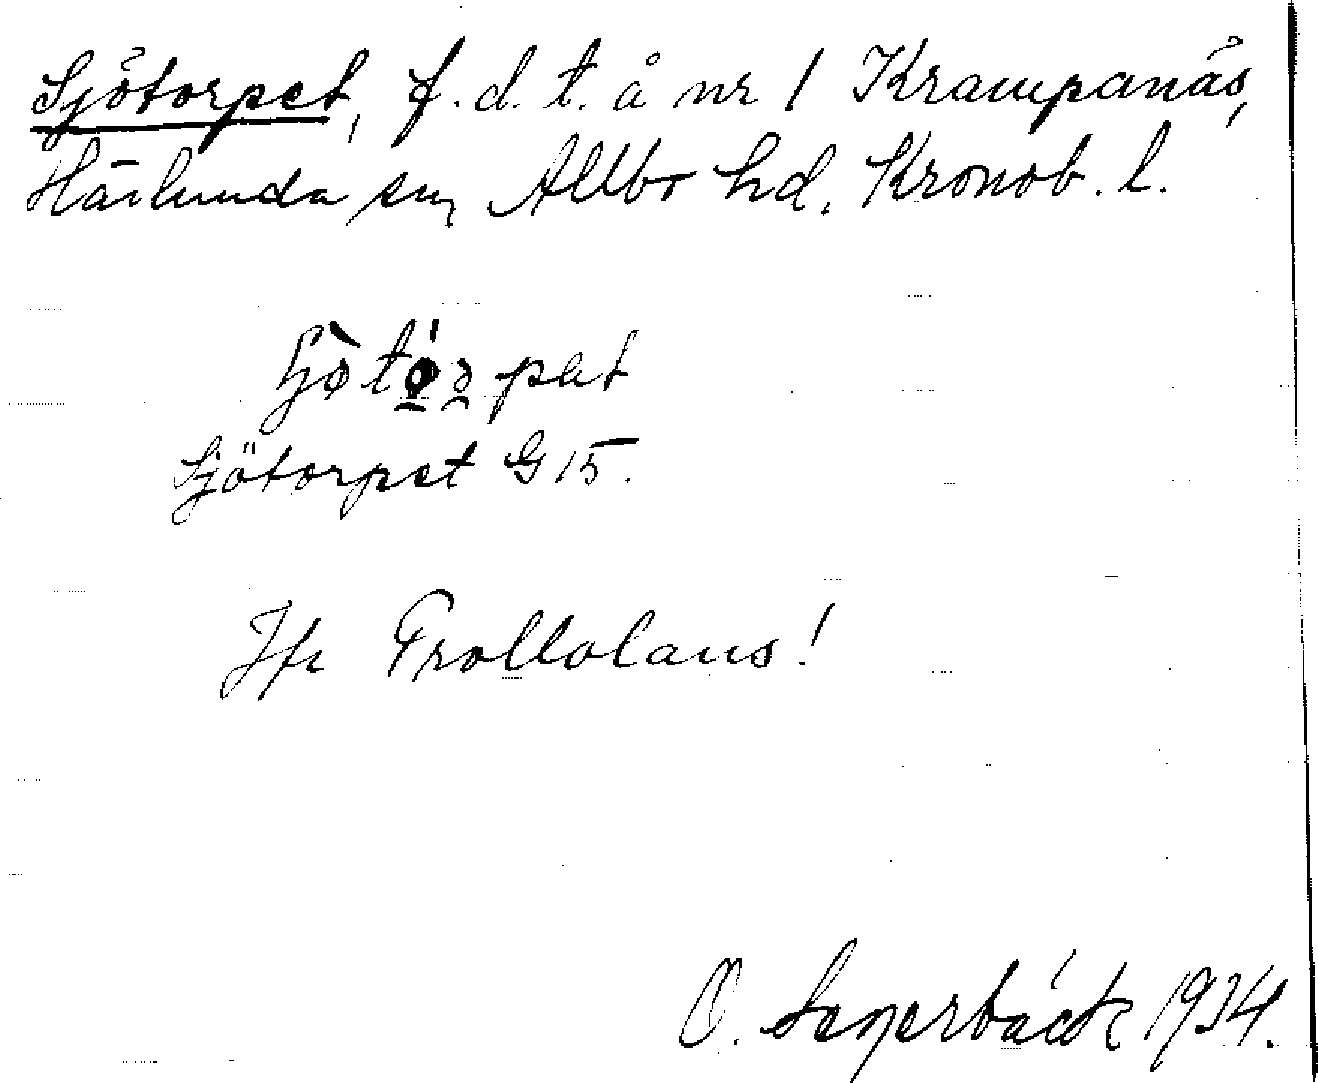 Sjötorpet, f. d. t. å nr 1 Krampanäs,
Härlunda sn, Allbo hd, Kronob. l.
Sjötorpet G 15.
Jfr Trollolaus!
O. Segerbäck 1934.